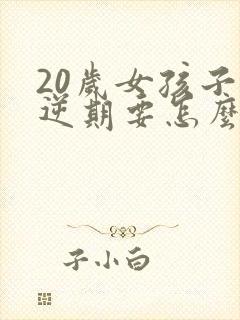 20歲女孩子
逆期要怎麼
子小白